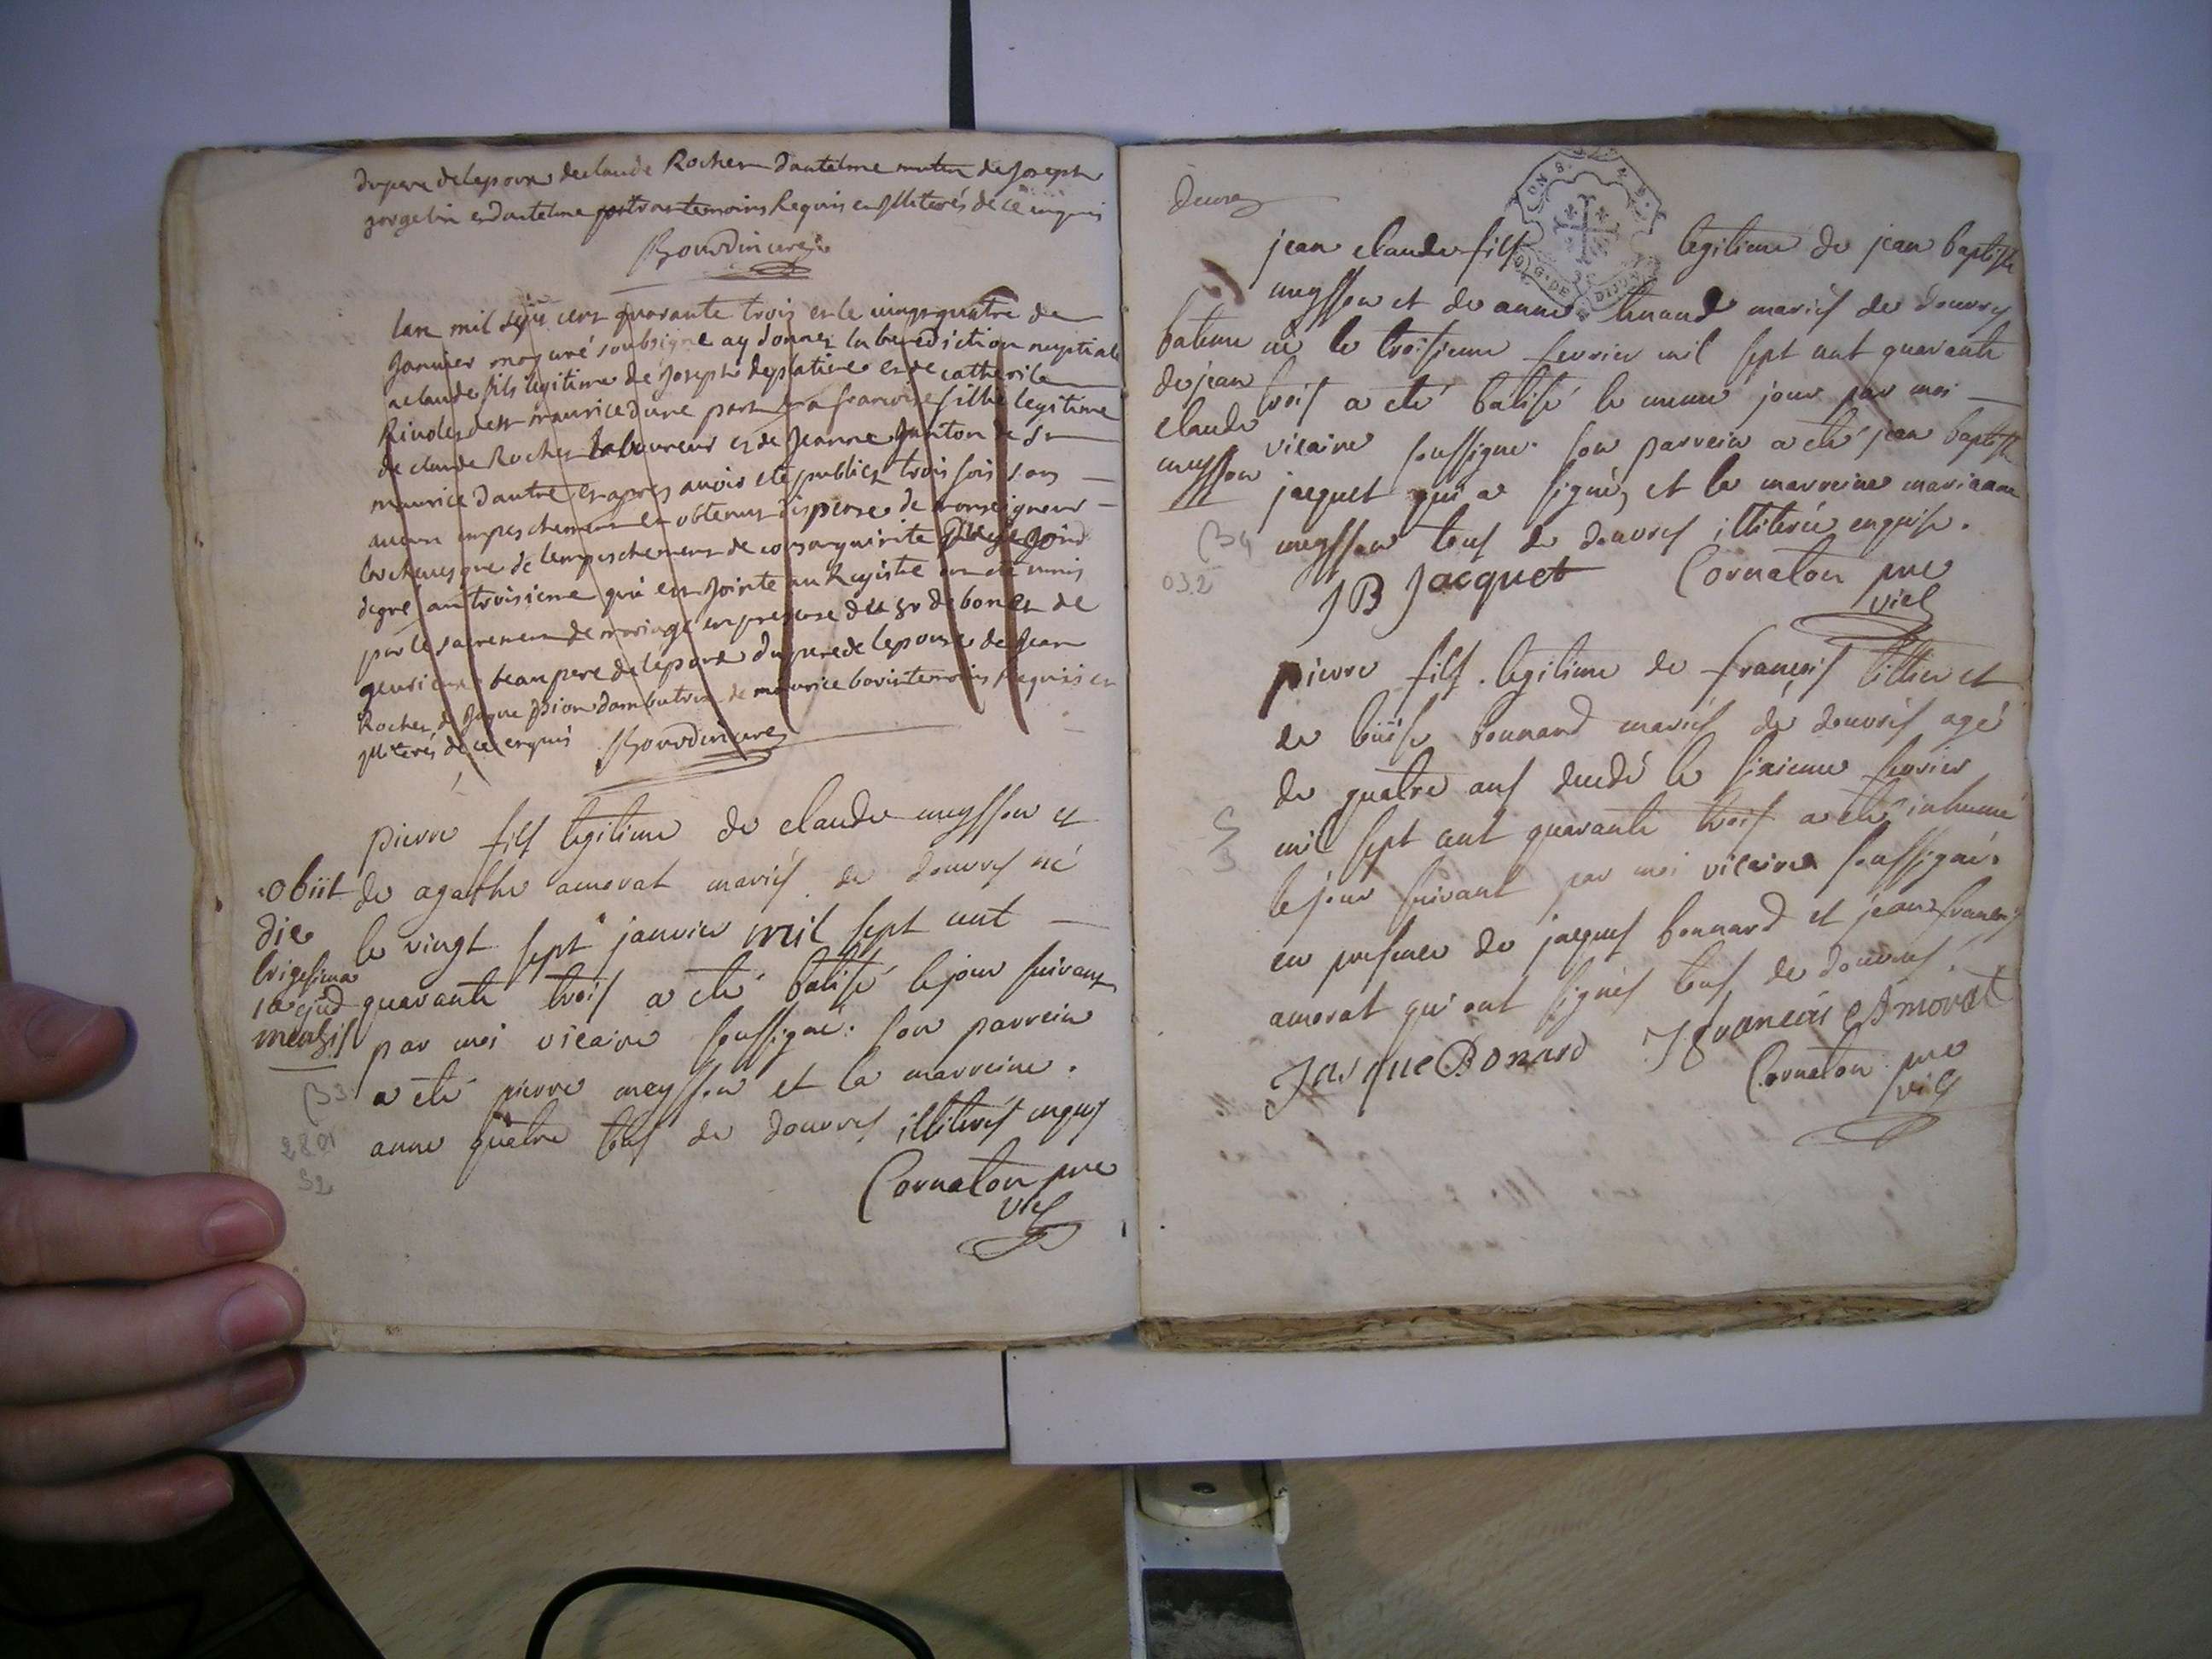 du pere de lepoux de claude Rocher dantelme mutin de Joseph
gorgelin et dantelme temoins Requis et Jlliterés de ce enquis
Bourdin curé
lan mil sept cens quarante trois et le vingt quatre de
Janvier moy curé soubsigné ay donnez la benediction nuptiale
a claude fils legitime de Joseph deplatiere et de catherile
Rivolet de st maurice dune part et a francoise fillie legitime
de claude Rocher laboureur et de Jeanne Janton de st
maurice dautre et apres avoir eté publiez trois fois sans
aucun empeschement et obtenu dispense de monseigneur
larchevesque de lempeschement de consanguinité
degré au troisieme qui est Jointe au Registre ont eté unis
par le sacrement de mariage en presence de st de bonet de
beau pere de lepoux du pere de lepouse de Jean
Rocher de Jaque pion dambutrix de maurice bovis temoins Requis et
Jlliterés de ce enquis Bourdin curé
pierre fils legitime de claude meysson et
obiit de agathe amorat mariés de douvres né
die le vingt sept janvier mil sept cent
trigesima
1a ejusd quarante trois a eté batisé le jour suivant
mensis par moi vicaire soussigné. son parrein
a eté pierre meysson et la marreine.
anne quatre tous de douvres illiterés enquis
Cornaton pre
vic
(33
2801
32
Douvres
jean claude fils legitime de jean baptiste
meysson et de anne tenand mariés de douvres
bateme né le troisieme fevrier mil sept cent quarante
de jean trois a eté batisé le meme jour par moi
claude vicaire soussigné. son parrein a eté jean baptiste
meysson jacquet qui a signé, et la marreine marianne
meysson tous de douvres illiterée enquise.
(34
032
J B Jacquet Cornaton pre
vic
pierre fils legitime de françois tillier et
de loüise bonnard mariés de douvres agé
de quatre ans decedé le sixieme fevrier
mil sept cent quarante trois a eté inhumé
le jour suivant par moi vicaire soussigné.
en presence de jacques bonnard et jean françois
amorat qui ont signés tous de douvres.
S
3
Jasque Bonard J francois Amorat
Cornaton pre
vic